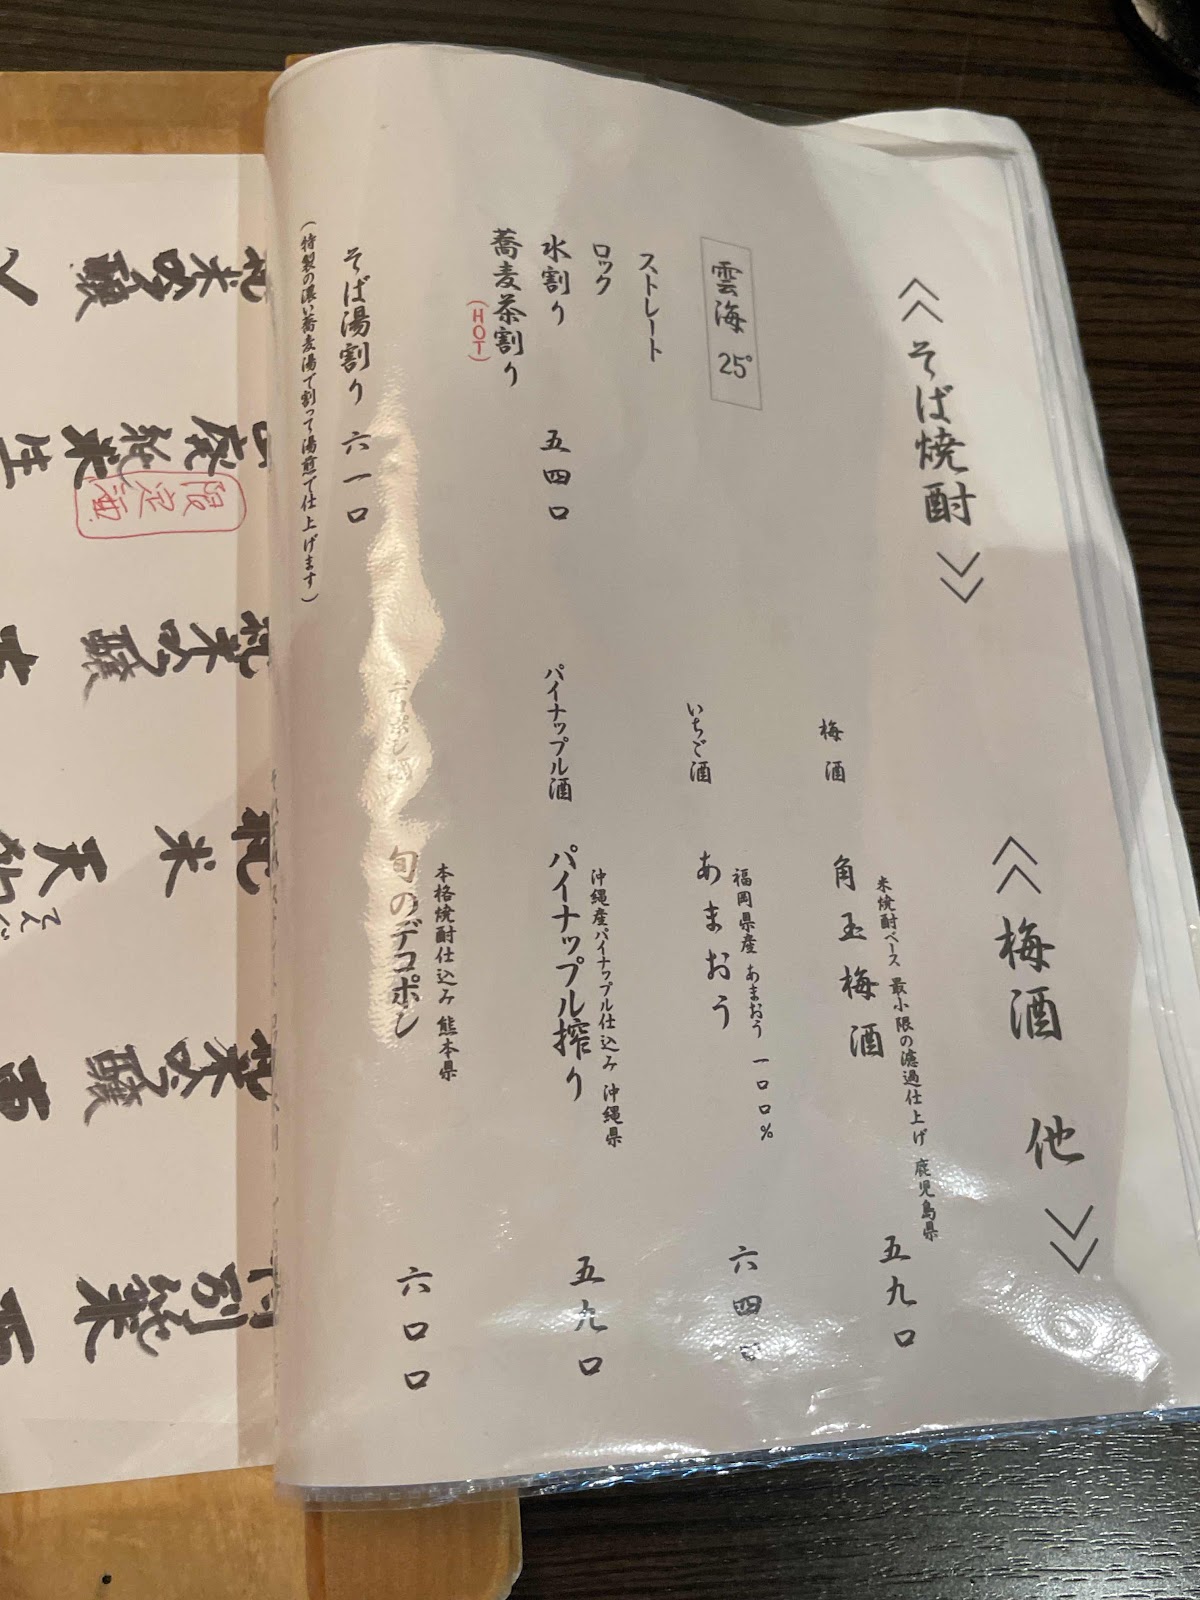 ≪そば焼酎≫
雲海 25°
ストレート
ロック
水割り 五四〇
蕎麦茶割り
(HOT)
そば湯割り 六一〇
(特製の濃い蕎麦湯で割って湯煎で仕上げます)
≪梅酒 他≫
米焼酎ベース 最小限の濾過仕上げ 鹿児島県
梅酒 角玉梅酒 五九〇
福岡県産 あまおう 一〇〇%
いちご酒 あまおう 六四〇
沖縄産パイナップル仕込み 沖縄県
パイナップル酒 パイナップル搾り 五九〇
本格焼酎仕込み 熊本県
デコポン酒 旬のデコポン 六〇〇
純米吟醸
限定酒
純米吟醸
純米
純米吟醸
特別純米